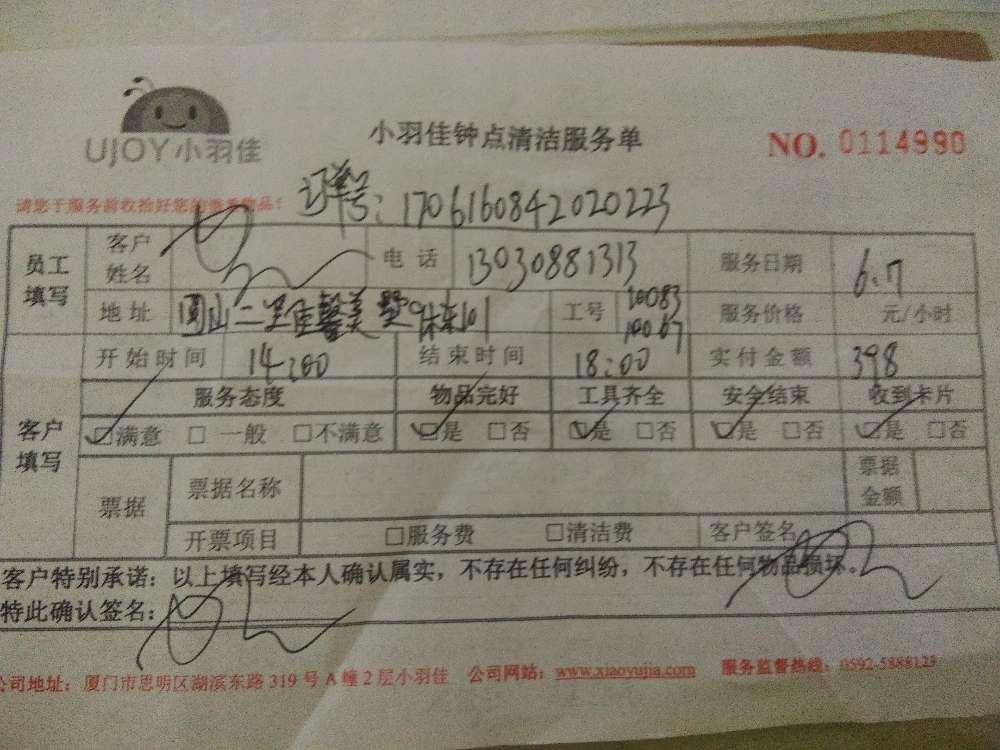 UJOY小羽佳
小羽佳钟点清洁服务单
NO. 0114990
请您于服务前收拾好您的贵重物品！
订单号：1706160842020223
员工填写 客户姓名 电话 13030881313 服务日期 6.7
地址 圆山二里佳馨美墅 工号 10083 10067 服务价格 元/小时
开始时间 14:00 结束时间 18:00 实付金额 398
客户填写 服务态度 物品完好 工具齐全 安全结束 收到卡片
☑满意 □一般 □不满意 ☑是 □否 ☑是 □否 ☑是 □否 ☑是 □否
票据 票据名称 票据金额
开票项目 □服务费 □清洁费 客户签名
客户特别承诺：以上填写经本人确认属实，不存在任何纠纷，不存在任何物品损坏。
特此确认签名：
公司地址：厦门市思明区湖滨东路319号A幢2层小羽佳 公司网站：www.xiaoyujia.com 服务监督热线：0592-5888123